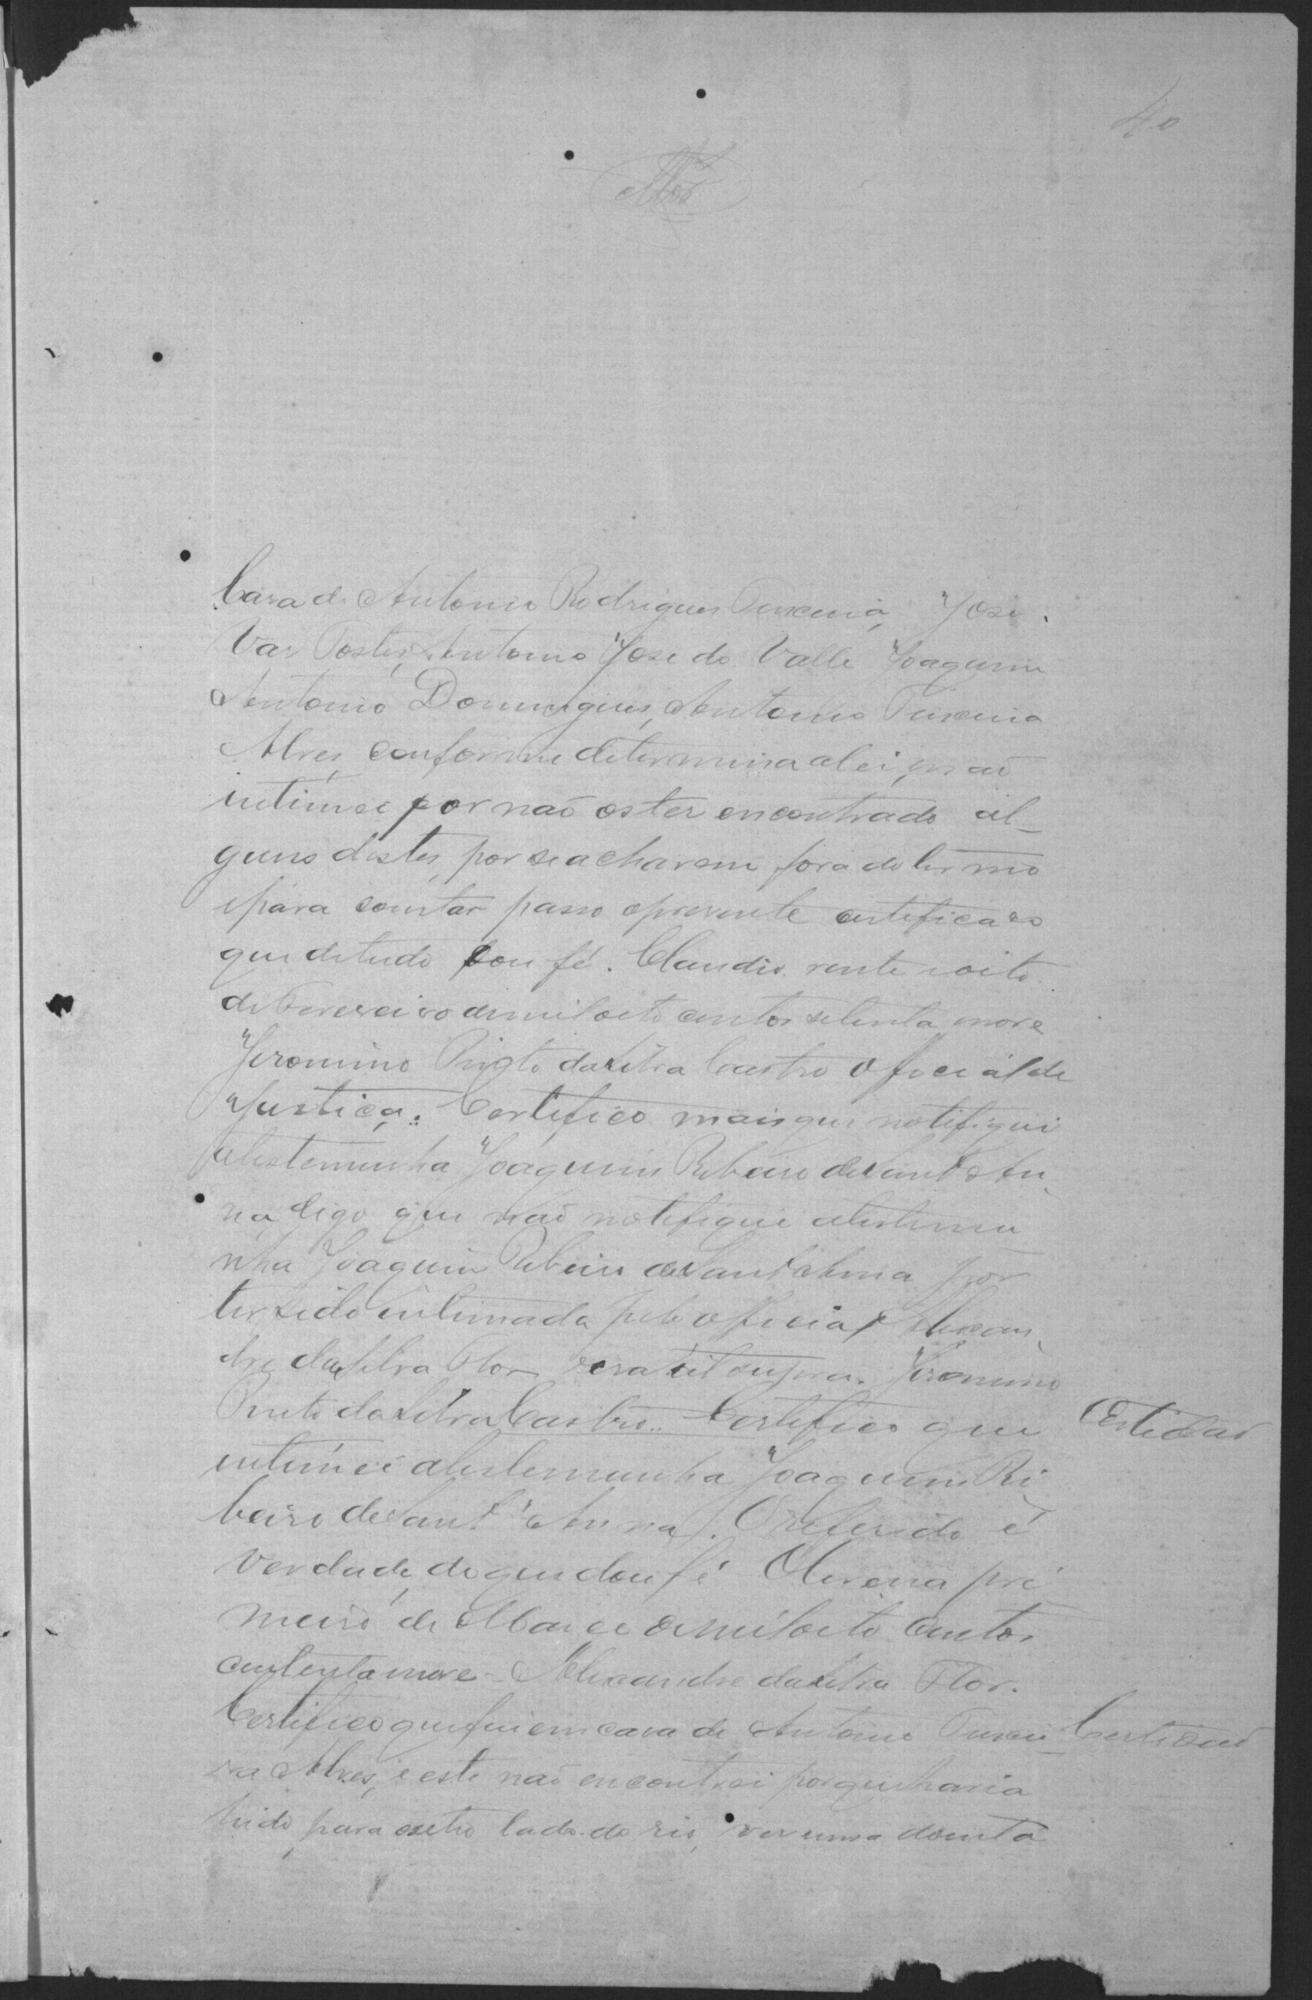 40
Casa de Antonio Rodrigues Teixeira, José
Vaz Antonio José do Valle Joaquim
Antonio Domingues, Antonio Teixeira
Alves, conforme determina a lei, não
intimei por não os ter encontrado al-
guns destes, por se acharem fora do termo
e para constar passo o presente certificado
que de tudo dou fé. Claudio vinte e oito
de Fevereiro de mil oito centos setenta nove
Jeronimo Pinto da Silva Castro Official de
Justiça. Certifico mais que notifiquei
a testemunha Joaquim Ribeiro de Sant'An-
na, digo que não notifiquei a testemu
nha Joaquim Ribeiro de Sant'Anna por
ter sido intimada pelo official Alexan-
dre da Silva Flor era ut supra. Jeronimo
Pinto da Silva Castro. Certifico que
Certidão
intimei a testemunha Joaquim Ri
beiro de Sant'Anna. O referido é
verdade, do que dou fé pri
meiro de Março de mil oito centos
e setenta nove - Alexandre da Silva Flor.
Certifico que fui em casa de Antonio Teixei-
Certidão
ra Alves, e este não encontrei porque havia
hido para outro lado do rio, ver uma doente